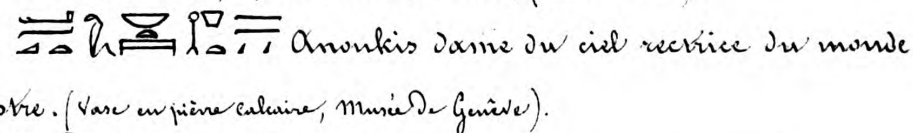 Anoukis dame du ciel rectrice du monde
stre. (Vase en pierre calcaire, Musée De Genève).